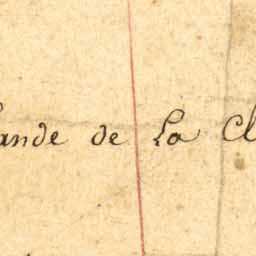 ande de La Cl